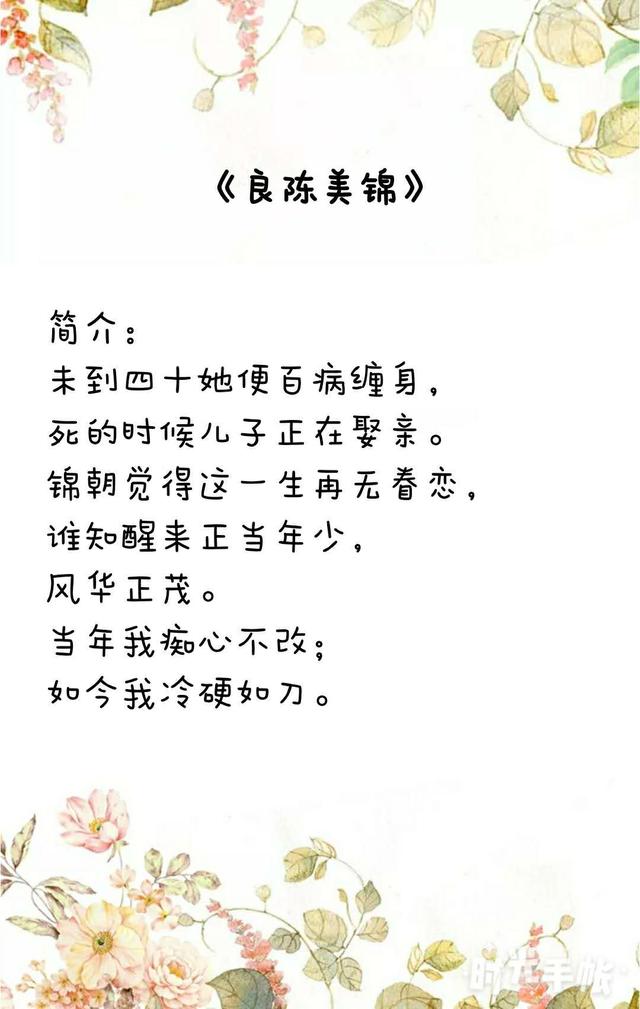 《良陈美锦》
简介：
未到四十她便百病缠身，
死的时候儿子正在娶亲。
锦朝觉得这一生再无眷恋，
谁知醒来正当年少，
风华正茂。
当年我痴心不改；
如今我冷硬如刀。
时光手帐